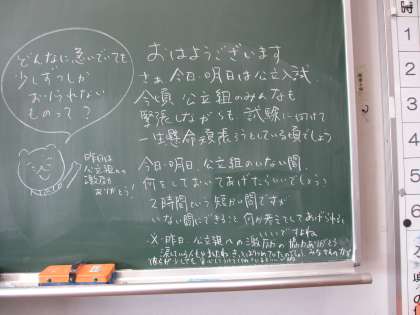 どんなに急いでいても
少しずつしか
おりられない
ものって？
昨日は
公立組への
激励
ありがとう！
おはようございます
さぁ 今日・明日は公立入試
今頃 公立組のみんなも
緊張しながらも 試験に向けて
一生懸命頑張ろうとしている頃でしょう
今日・明日、公立組のいない間、
何をしておいてあげたらいいでしょう？
2時間という短い間ですが
いない間にできること 何か考えてしてあげられると
いいですよね
昨日、公立組への激励の協力ありがとう
1
2
3
4
5
6